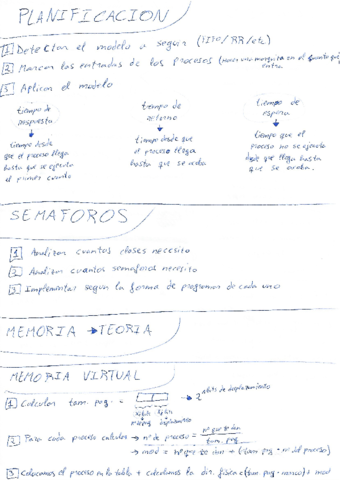 PLANIFICACION
1 Detectar el modelo a seguir (FIFO/RR/etc)
2 Marcar las entradas de los procesos (hacer una marquita en el que
entra
3 Aplicar el modelo
tiempo de respuesta
tiempo desde que el proceso llega hasta que se ejecuta el primer cuanto
tiempo de retorno
tiempo desde que el proceso llega hasta que se acaba
tiempo de espera
tiempo que el proceso no se ejecuta desde que llega hasta que se acaba.
SEMAFOROS
1 Analizar cuantas clases necesito
2 Analizar cuantos semaforos necesito
3 Implementar segun la forma de programar de cada uno
MEMORIA → TEORIA
MEMORIA VIRTUAL
1 Calcular tam. pag. = 2 nºbits de desplazamiento
xbits xbits
desplazamiento
2 Para cada proceso calcular → nº de proceso =
tam. pag
→ mod =
3 Colocamos el proceso en la tabla + calculamos la dir. fisica = (tam pag · marco) + mod